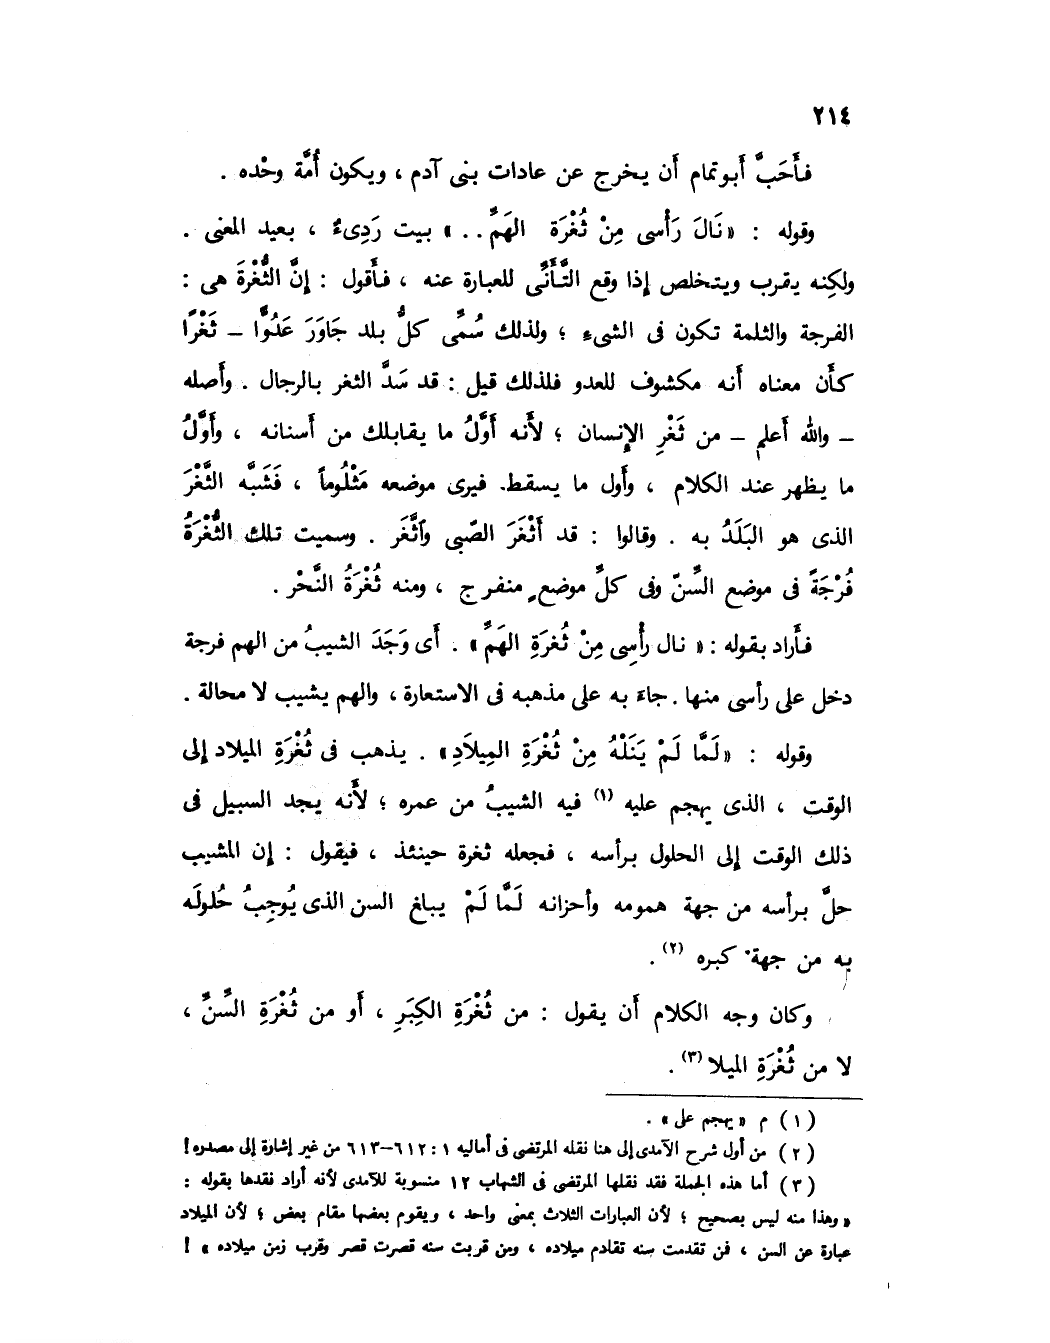 ٢١٤
فأَحَبَّ أبو تمام أن يخرج عن عادات بنى آدم ، ويكون أُمَّة وحْده .
وقوله : «نَالَ رَأْسى مِنْ ثُغْرَة الهَمِّ . . » بيت رَدِىءٌ ، بعيد المعنى .
ولكنه يقرب ويتخلص إذا وقع التَّأَنِّى للعبارة عنه ، فأقول : إنَّ الثُّغْرَةَ هى :
الفرجة والثلمة تكون فى الشىء ؛ ولذلك سُمِّى كلُّ بلد جَاوَرَ عَدُوًّا – ثَغْرًا
كأن معناه أنه مكشوف للعدو فلذلك قيل : قد سَدَّ الثغر بالرجال . وأصله
– والله أعلم – من ثَغْرِ الإنسان ؛ لأنه أَوَّلُ ما يقابلك من أسنانه ، وأَوَّلُ
ما يظهر عند الكلام ، وأول ما يسقط. فيرى موضعه مَثْلُوماً ، فَشَبَّه الثَّغْرَ
الذى هو البَلَدُ به . وقالوا : قد أَثْغَرَ الصّبى وآثَّغَر . وسميت تلك الثُّغْرَةُ
فُرْجَةً فى موضع السِّنّ وفى كلِّ موضعٍ منفرج ، ومنه ثُغْرَةُ النَّحْر .
فأراد بقوله : « نال رأْسِى مِنْ ثُغرَةِ الهَمِّ » . أى وَجَدَ الشيبُ من الهم فرجة
دخل على رأسى منها . جاءَ به على مذهبه فى الاستعارة ، والهم يشيب لا محالة .
وقوله : «لَمَّا لَمْ يَنَلْهُ مِنْ ثُغْرَةِ المِيلَادِ» . يذهب فى ثُغْرَةِ الميلاد إلى
الوقت ، الذى يهجم عليه (١) فيه الشيبُ من عمره ؛ لأنه يجد السبيل فى
ذلك الوقت إلى الحلول برأسه ، فجعله ثغرة حينئذ ، فيقول : إن المشيب
حلَّ برأسه من جهة همومه وأحزانه لَمَّا لَمْ يبلغ السن الذى يُوجِبُ حُلولَه
به من جهة كبره (٢) .
وكان وجه الكلام أن يقول : من ثُغْرَةِ الكِبَرِ ، أو من ثُغْرَةِ السِّنِّ ،
لا من ثُغْرَةِ الميلا (٣) .
(١) م « يهجم على » .
(٢) من أول شرح الآمدى إلى هنا نقله المرتضى فى أماليه ١ : ٦١٢–٦١٣ من غير إشارة إلى مصدره !
(٣) أما هذه الجملة فقد نقلها المرتضى فى الشهاب ١٢ منسوبة للآمدى لأنه أراد نقدها بقوله :
« وهذا منه ليس بصحيح ؛ لأن العبارات الثلاث بمعنى واحد ، ويقوم بعضها مقام بعض ؛ لأن الميلاد
عبارة عن السن ، فن تقدمت سنه تقادم ميلاده ، ومن قربت سنه قصرت قصر وقرب زمن ميلاده » !